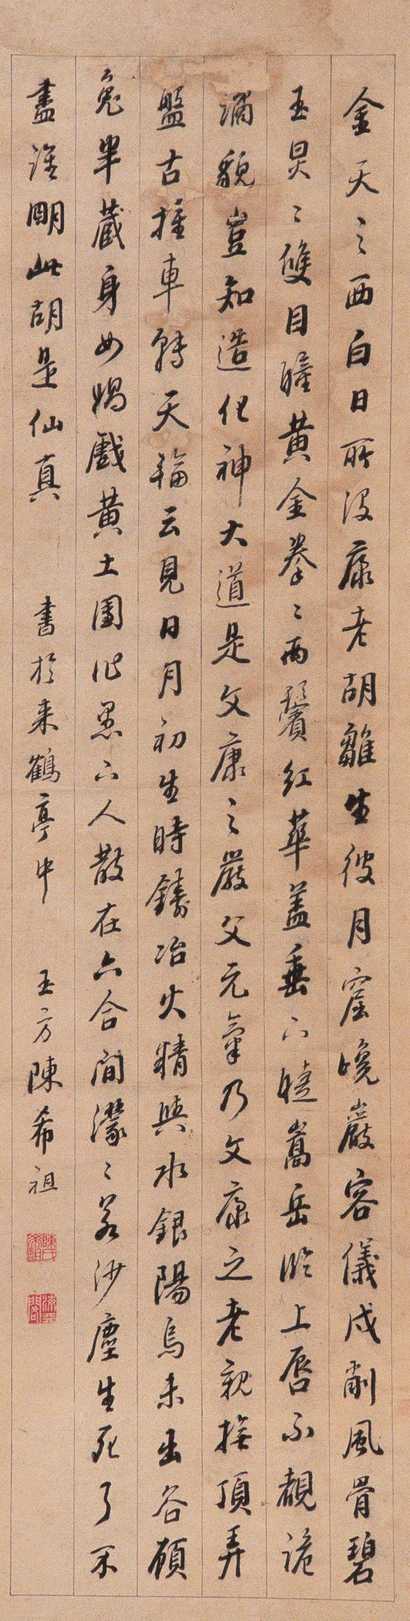 金天之西白日所没康老胡雛生彼月窟巉巖容儀戍削風骨碧
玉炅〻雙目瞳黄金拳〻兩鬢紅華蓋垂下睫嵩岳臨上唇不覩詭
譎貌豈知造化神大道是文康之嚴父元氣乃文康之老親撫頂弄
盤古推車轉天輪云見日月初生時鑄冶火精與水銀陽烏未出谷顧
兔半蔵身女媧戲黄土團作愚下人散在六合間濛〻若沙塵生死了不
盡誰明此胡是仙真
書於来鶴亭中 玉方陳希祖